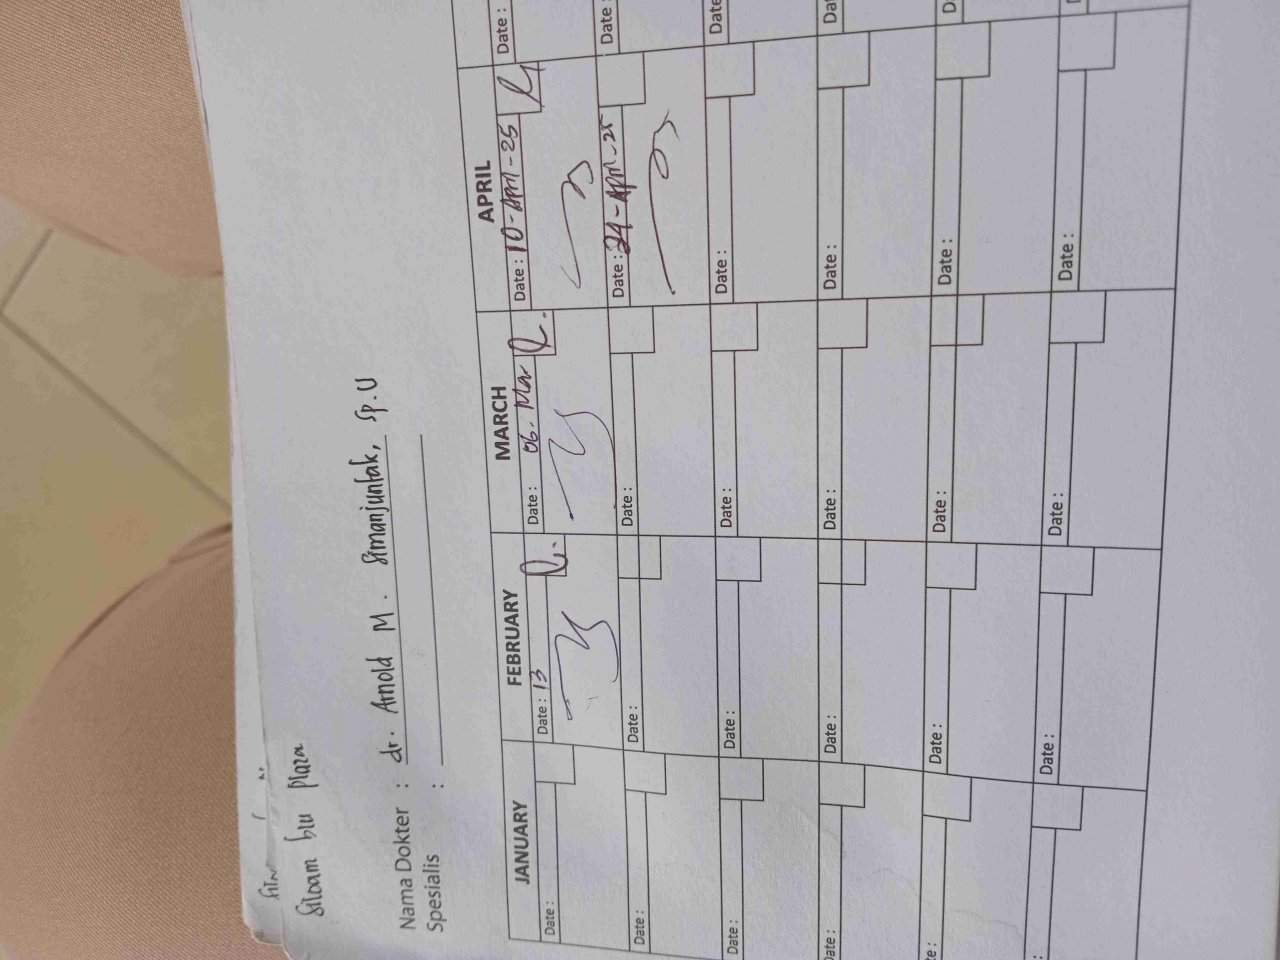 Siloam blu plaza
Nama Dokter : dr. Arnold M. Simanjuntak, Sp.U
Spesialis :
JANUARY FEBRUARY MARCH APRIL
Date : Date : 13 Date : 06. Mar Date : 10-April-25 Date :
Date : Date : Date : Date : 24-April-25 Date :
Date : Date : Date : Date : Date
Date : Date : Date : Date :
Date : Date : Date :
Date : Date : Date :